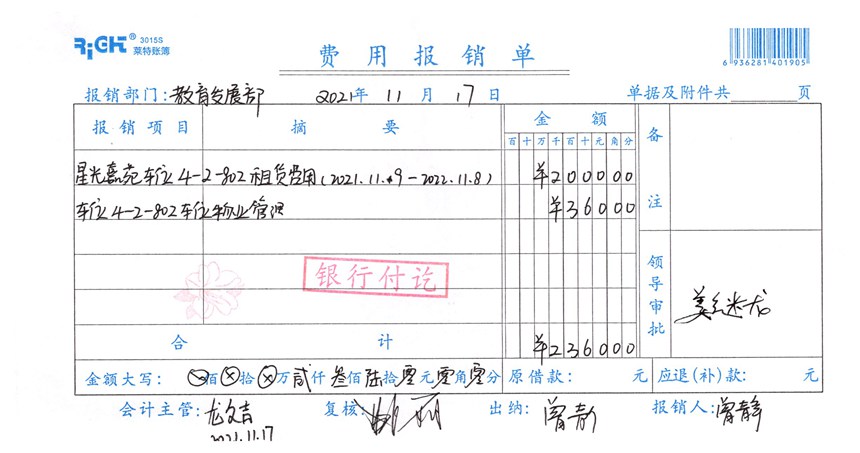 RiGHT® 3015S
莱特账簿
费用报销单
6 936281 401905
报销部门:教育发展部 2021年 11月 17日 单据及附件共 页
报销项目 摘要 金额 备注
百十万千百十元角分
星光嘉苑车位4-2-802租赁费用(2021.11.9-2022.11.8) ¥200000
车位4-2-802车位物业管理 ¥36000
银行付讫
领导审批
合计 ¥236000
金额大写: ⊗佰⊗拾⊗万贰仟叁佰陆拾零元零角零分 原借款: 元 应退(补)款: 元
会计主管:龙文吉 复核: 出纳:曾静 报销人:曾静
2021.11.17